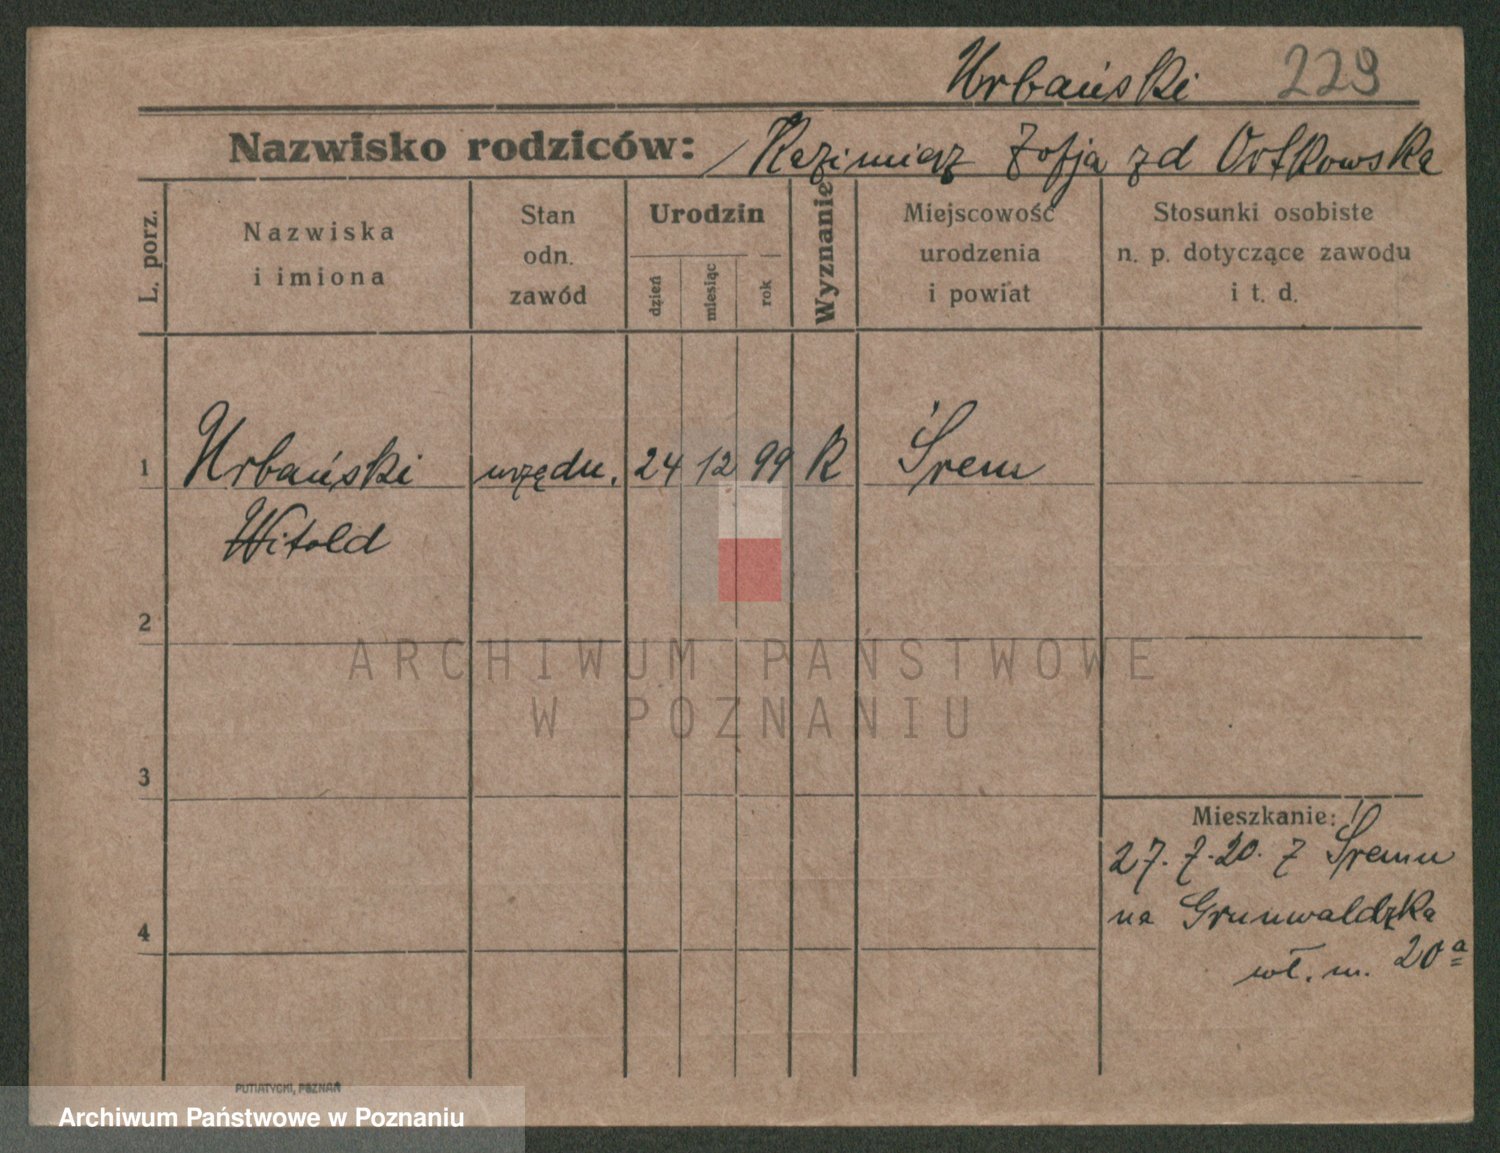 Urbański 229
Nazwisko rodziców: Kazimierz Zofja zd Ortkowska
L. porz.
Nazwiska
i imiona
Stan
odn.
zawód
Urodzin
dzień
miesiąc
rok
Wyznanie
Miejscowość
urodzenia
i powiat
Stosunki osobiste
n. p. dotyczące zawodu
i t. d.
1 Urbański urzędn. 24 12 99 R Śrem
Witold
2
ARCHIWUM PAŃSTWOWE
W POZNANIU
3
Mieszkanie:
27. 7. 20. z Śremu
4 na Grunwaldzka
wł. m. 20a
PUTIATYCKI, POZNAŃ
Archiwum Państwowe w Poznaniu